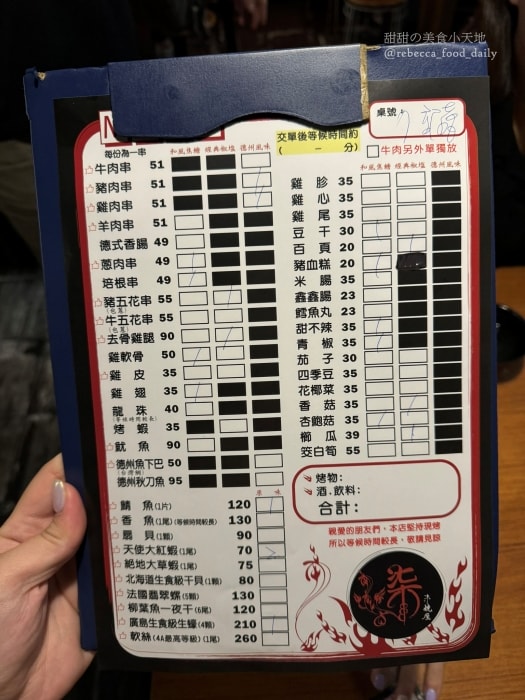 甜甜の美食小天地
@rebecca_food_daily
桌號：
交單後等候時間約
( － 分)
牛肉另外單獨放
每份為一串 和風焦糖 經典椒塩 德州風味
牛肉串 51
豬肉串 51
雞肉串 51
羊肉串 51
德式香腸 49
蔥肉串 49
培根串 49
豬五花串 55
(包蔥)
牛五花串 55
(包蔥)
去骨雞腿 90
雞軟骨 50
雞皮 35
雞翅 35
龍珠 40
(等候時間較長)
烤蝦 35
魷魚 90
德州魚下巴 50
(台灣鯛)
德州秋刀魚 95
原味
鯖魚(1片) 120
香魚(1尾)(等候時間較長) 130
扇貝(1顆) 90
天使大紅蝦(1尾) 70
絕地大草蝦(1尾) 75
北海道生食級干貝(1顆) 80
法國翡翠螺(5顆) 130
柳葉魚一夜干(6尾) 120
廣島生食級生蠔(4顆) 210
軟絲(4A最高等級)(1尾) 260
和風焦糖 經典椒塩 德州風味
雞胗 35
雞心 35
雞尾 35
豆干 30
百頁 20
豬血糕 20
米腸 35
鑫鑫腸 23
鱈魚丸 23
甜不辣 35
青椒 35
茄子 30
四季豆 35
花椰菜 35
香菇 35
杏鮑菇 35
櫛瓜 39
筊白筍 55
烤物：
酒．飲料：
合計：
親愛的朋友們，本店堅持現烤
所以等候時間較長，敬請見諒
柒
木燒屋